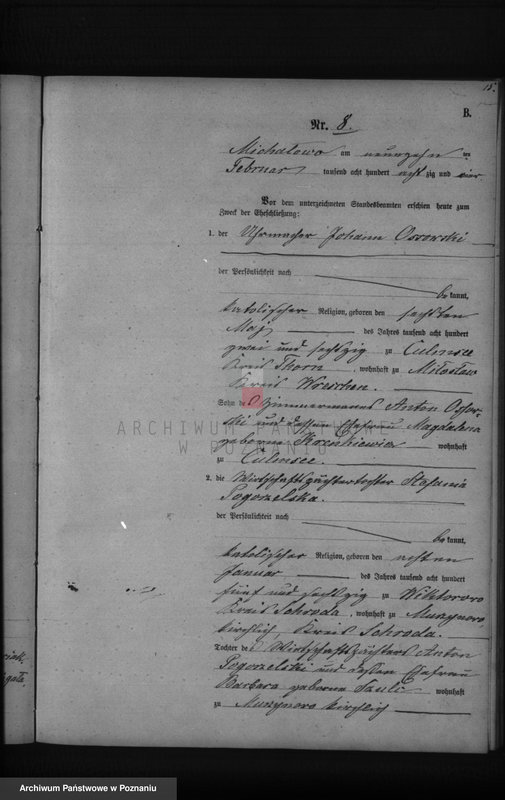 15.
B.
Nr. 8.
Michalowo am neunzehn ten
Februar tausend acht hundert acht zig und vier.
Vor dem unterzeichneten Standesbeamten erschien heute zum
Zweck der Eheschließung:
1. der Uhrmacher Johann Ossowski
der Persönlichkeit nach
be kannt,
katolischer Religion, geboren den sechsten
Maj des Jahres tausend acht hundert
zwei und sechzig zu Culmsee
Kreis Thorn, wohnhaft zu Miloslaw
Kreis Wreschen.
Sohn des Zimmermanns Anton Ossow-
ski und dessen Ehefrau Magdalena
geborene wohnhaft
zu Culmsee.
2. die Wirthschaftspächtertochter Stefania
Pogorzelska.
der Persönlichkeit nach
be kannt,
katolischer Religion, geboren den achten
Januar des Jahres tausend acht hundert
fünf und sechzig zu Wiktorowo
Kreis Schroda, wohnhaft zu Murzynowo
kirchlich, Kreis Schroda.
Tochter des Wirthschaftspächters Anton
Pogorzelski und dessen Ehefrau
Barbara geborene Szulc wohnhaft
zu Murzynowo kirchlich
ARCHIWUM PAŃSTWOWE
W POZNANIU
Archiwum Państwowe w Poznaniu